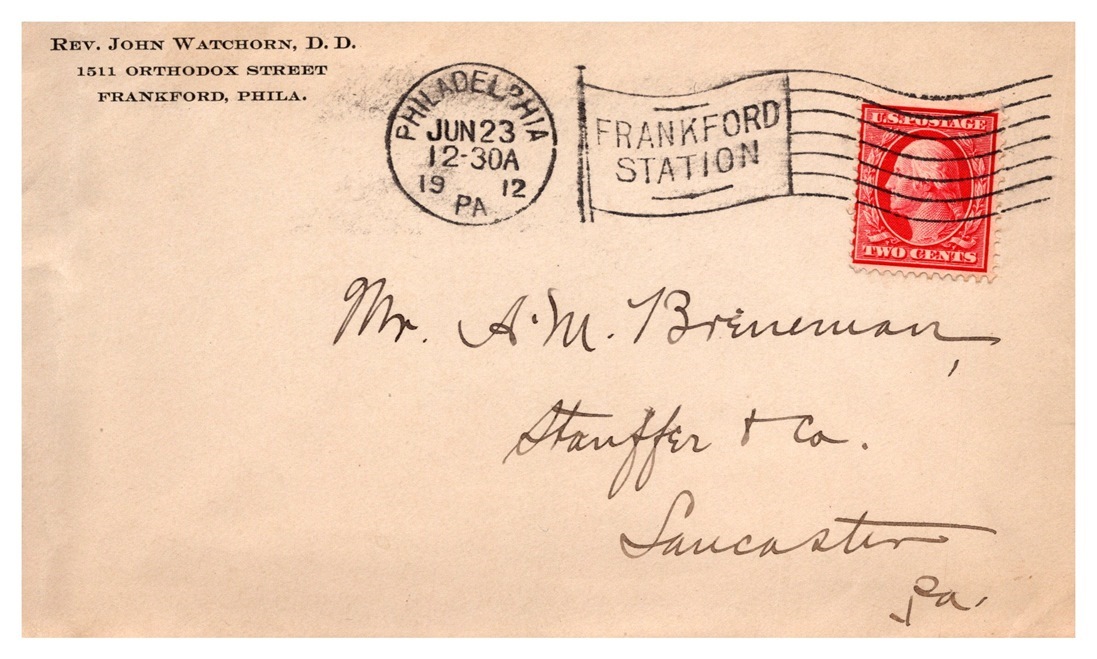 REV. JOHN WATCHORN, D. D.
1511 ORTHODOX STREET
FRANKFORD, PHILA.
PHILADELPHIA
JUN 23
12-30A
19 12
PA
FRANKFORD
STATION
U.S. POSTAGE
TWO CENTS
Mr. A. M. Breneman,
Stauffer & Co.
Lancaster
Pa.